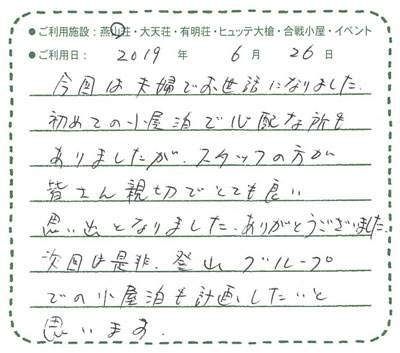 ●ご利用施設：燕山荘・大天荘・有明荘・ヒュッテ大槍・合戦小屋・イベント
●ご利用日： 2019 年 6 月 26 日
今回は夫婦でお世話になりました.
初めての小屋泊で心配な所も
ありましたが、スタッフの方が
皆さん親切でとても良い
思い出となりました、ありがとうございました
次回は是非、登山グループ
での小屋泊も計画したいと
思います.